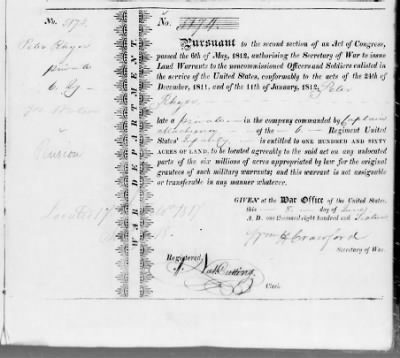 No. 5174.
Peter Rhyer
private
6.
Pension
WAR DEPARTMENT.
No. 5174.
Pursuant to the second section of an Act of Congress,
passed the 6th of May, 1812, authorising the Secretary of War to issue
Land Warrants to the noncommissioned Officers and Soldiers enlisted
in the service of the United States, conformably to the acts of the 24th of
December, 1811, and of the 11th of January, 1812, Peter
Rhyer
late a private in the company commanded by Captain
of the 6 Regiment United
States' Infantry is entitled to ONE HUNDRED AND SIXTY
ACRES OF LAND, to be located agreeably to the said act on any unlocated
parts of the six millions of acres appropriated by law for the original
grantees of such military warrants; and this warrant is not assignable
or transferable in any manner whatever.
GIVEN at the War Office of the United States,
this 8 day of
A. D. one thousand eight hundred and Sixteen
Wm H Crawford
Secretary of War.
Registered,
Nat Cutting
Clerk.